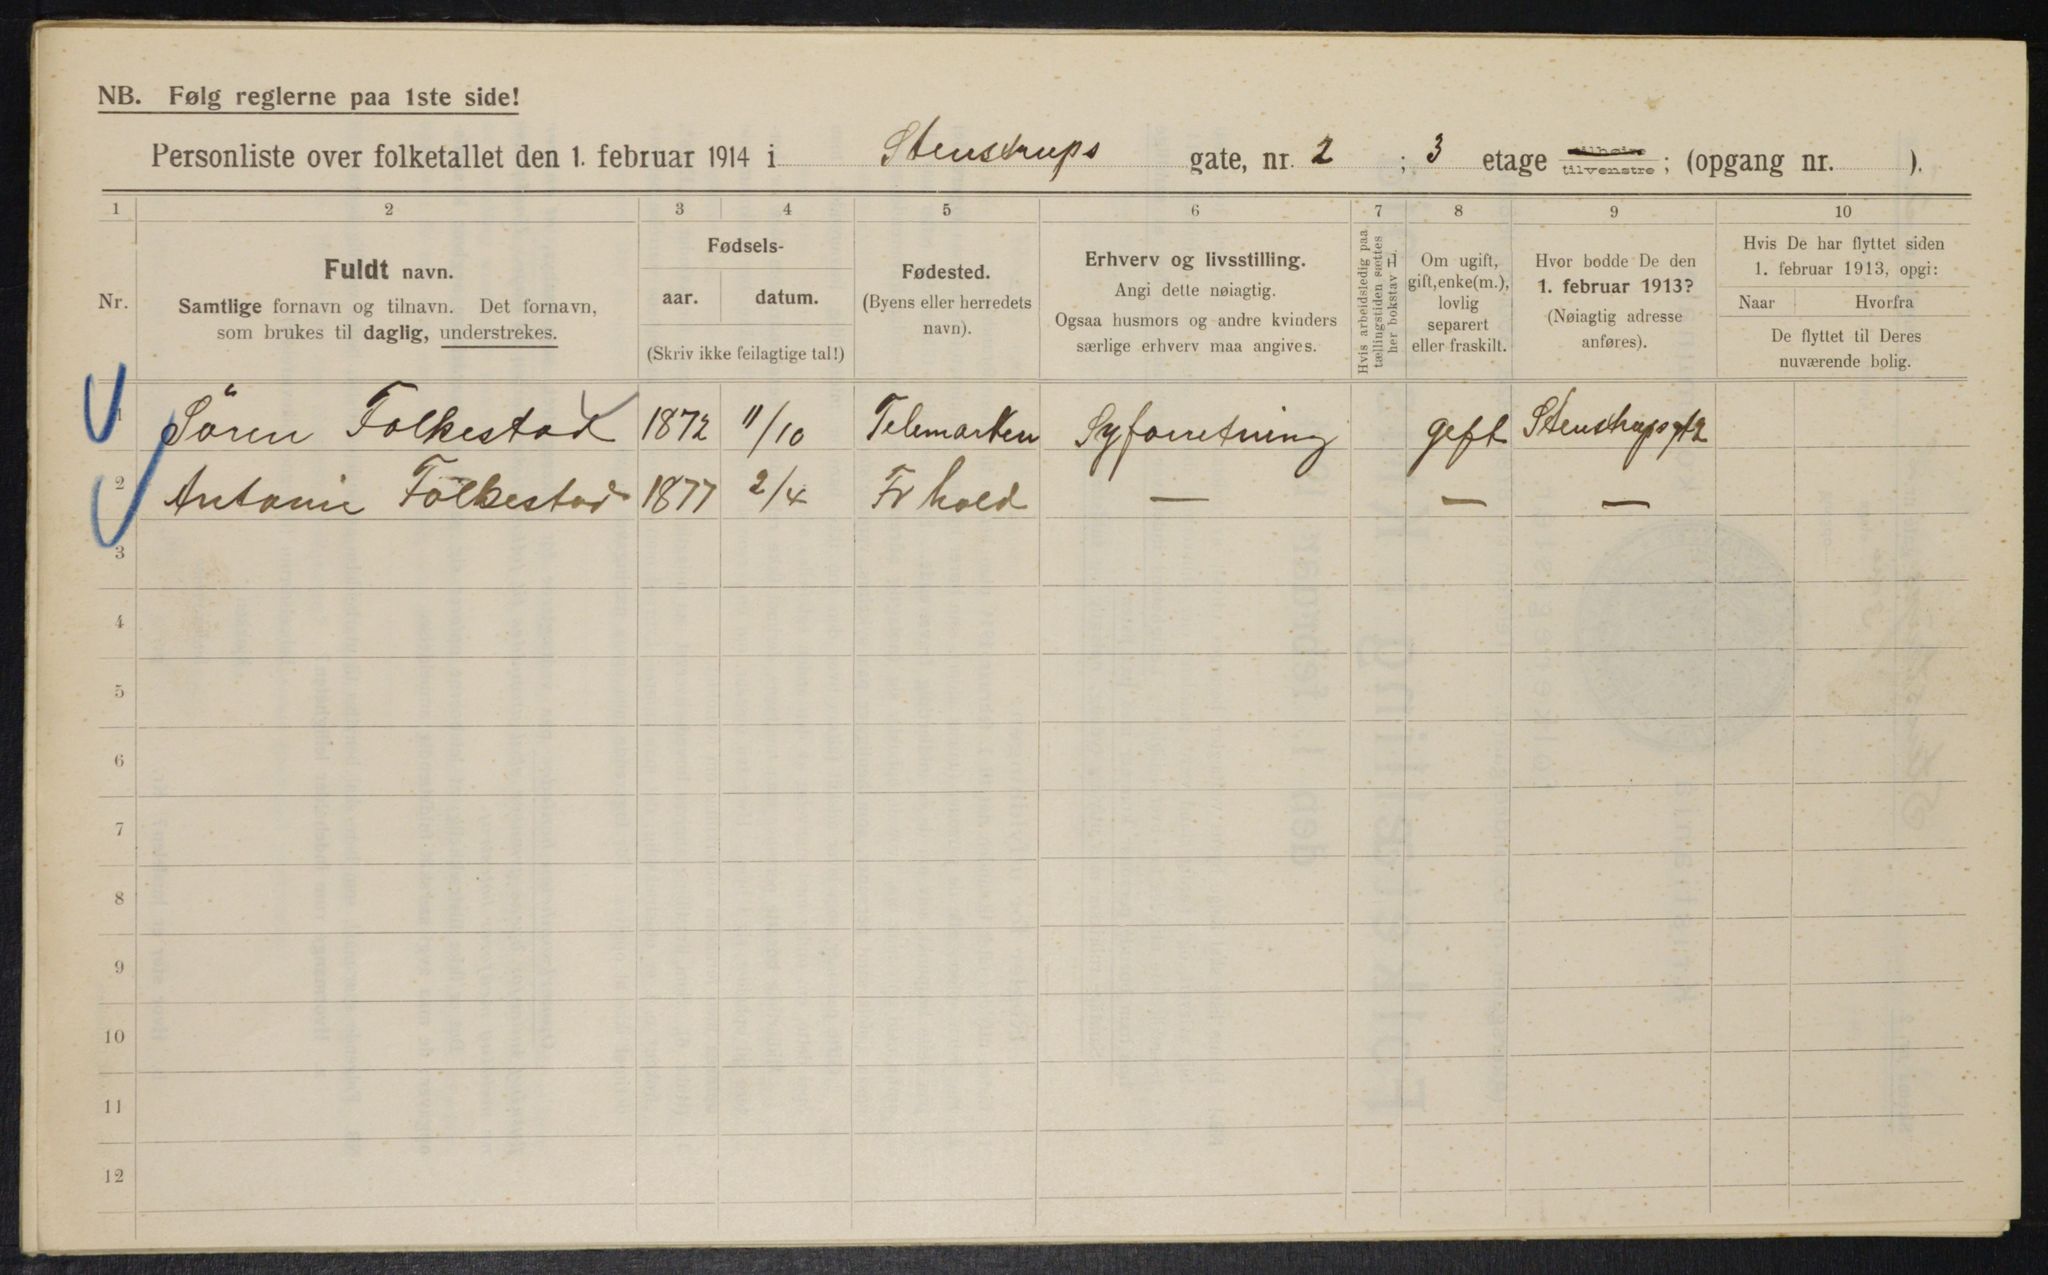 NB. Følg reglerne paa 1ste side!
Personliste over folketallet den 1. februar 1914 i Stenstrups gate, nr. 2 ; 3 etage tilhøire tilvenstre ; (opgang nr. ).
1 2 3 4 5 6 7 8 9 10
Nr.
Fuldt navn.
Samtlige fornavn og tilnavn. Det fornavn,
som brukes til daglig, understrekes.
Fødsels-
aar. datum.
(Skriv ikke feilagtige tal!)
Fødested.
(Byens eller herredets
navn).
Erhverv og livsstilling.
Angi dette nøiagtig.
Ogsaa husmors og andre kvinders
særlige erhverv maa angives.
Hvis arbeidsledig paa
tællingstiden sættes
her bokstav L
Om ugift,
gift, enke(m.),
lovlig
separert
eller fraskilt.
Hvor bodde De den
1. februar 1913?
(Nøiagtig adresse
anføres).
Hvis De har flyttet siden
1. februar 1913, opgi:
Naar Hvorfra
De flyttet til Deres
nuværende bolig.
1 Sören Folkestad 1872 11/10 Telemarken Syforretning geft Stenstrupsgt 2
2 Antonie Folkestad 1877 2/4 Fr hald — — —
3
4
5
6
7
8
9
10
11
12